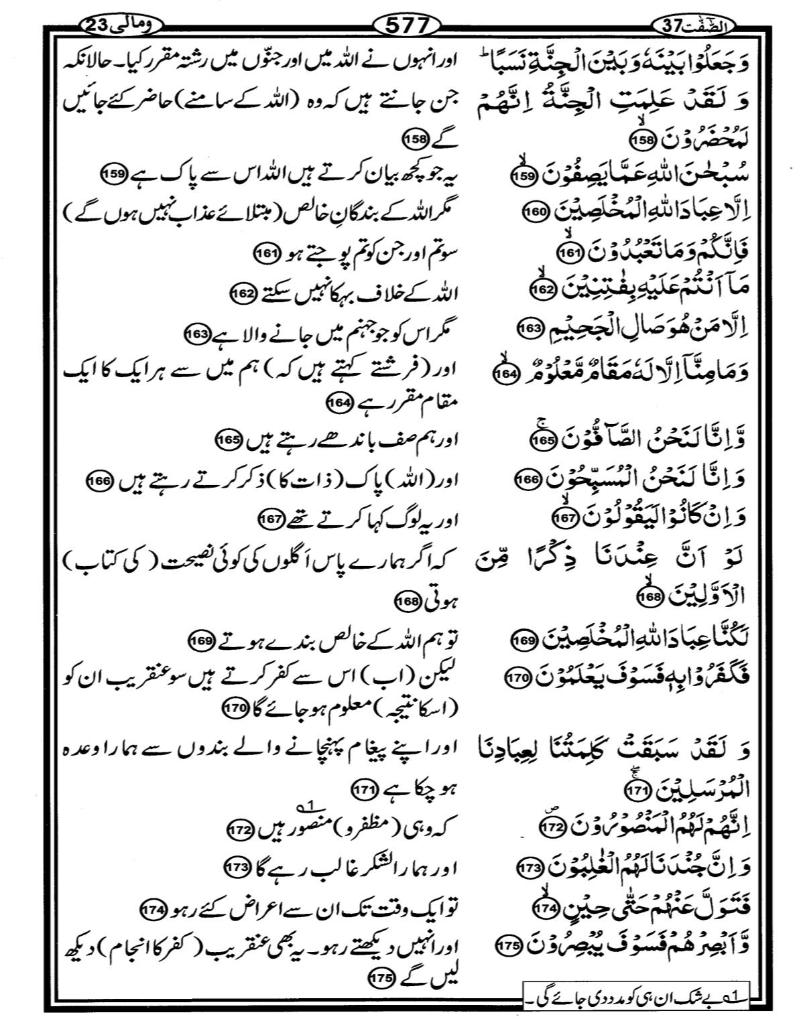 الصّٰفّٰت 37
577
ومالی 23
وَجَعَلُوْا بَيْنَهٗ وَبَيْنَ الْجِنَّةِ نَسَبًا ؕ
وَ لَقَدْ عَلِمَتِ الْجِنَّةُ اِنَّهُمْ
لَمُحْضَرُوْنَ ۙ 158
سُبْحٰنَ اللّٰهِ عَمَّا يَصِفُوْنَ ۙ 159
اِلَّا عِبَادَ اللّٰهِ الْمُخْلَصِيْنَ 160
فَاِنَّكُمْ وَمَا تَعْبُدُوْنَ ۙ 161
مَآ اَنْتُمْ عَلَيْهِ بِفٰتِنِيْنَ ۙ 162
اِلَّا مَنْ هُوَ صَالِ الْجَحِيْمِ 163
وَمَا مِنَّآ اِلَّا لَهٗ مَقَامٌ مَّعْلُوْمٌ ۙ 164
وَّاِنَّا لَنَحْنُ الصَّآفُّوْنَ ۚ 165
وَاِنَّا لَنَحْنُ الْمُسَبِّحُوْنَ 166
وَاِنْ كَانُوْا لَيَقُوْلُوْنَ ۙ 167
لَوْ اَنَّ عِنْدَنَا ذِكْرًا مِّنَ
الْاَوَّلِيْنَ ۙ 168
لَكُنَّا عِبَادَ اللّٰهِ الْمُخْلَصِيْنَ 169
فَكَفَرُوْا بِهٖ فَسَوْفَ يَعْلَمُوْنَ 170
وَ لَقَدْ سَبَقَتْ كَلِمَتُنَا لِعِبَادِنَا
الْمُرْسَلِيْنَ ۚ 171
اِنَّهُمْ لَهُمُ الْمَنْصُوْرُوْنَ ۪ 172
وَاِنَّ جُنْدَنَا لَهُمُ الْغٰلِبُوْنَ 173
فَتَوَلَّ عَنْهُمْ حَتّٰى حِيْنٍ ۙ 174
وَّاَبْصِرْهُمْ فَسَوْفَ يُبْصِرُوْنَ 175
اور انہوں نے اللہ میں اور جنّوں میں رشتہ مقرر کیا۔ حالانکہ
جن جانتے ہیں کہ وہ (اللہ کے سامنے) حاضر کئے جائیں
گے 158
یہ جو کچھ بیان کرتے ہیں اللہ اس سے پاک ہے 159
مگر اللہ کے بندگانِ خالص (مبتلائے عذاب نہیں ہوں گے)
سو تم اور جن کو تم پوجتے ہو 161
اللہ کے خلاف بہکا نہیں سکتے 162
مگر اس کو جو جہنم میں جانے والا ہے 163
اور (فرشتے کہتے ہیں کہ) ہم میں سے ہر ایک کا ایک
مقام مقرر ہے 164
اور ہم صف باندھے رہتے ہیں 165
اور (اللہ) پاک (ذات کا) ذکر کرتے رہتے ہیں 166
اور یہ لوگ کہا کرتے تھے 167
کہ اگر ہمارے پاس اَگلوں کی کوئی نصیحت (کی کتاب)
ہوتی 168
تو ہم اللہ کے خالص بندے ہوتے 169
لیکن (اب) اس سے کفر کرتے ہیں سو عنقریب ان کو
(اسکا نتیجہ) معلوم ہو جائے گا 170
اور اپنے پیغام پہنچانے والے بندوں سے ہمارا وعدہ
ہو چکا ہے 171
کہ وہی (مظفرو) منصور ہیں 1؎ 172
اور ہمارا لشکر غالب رہے گا 173
تو ایک وقت تک ان سے اعراض کئے رہو 174
اور انہیں دیکھتے رہو۔ یہ بھی عنقریب (کفر کا انجام) دیکھ
لیں گے 175
1؎ بے شک ان ہی کو مدد دی جائے گی۔